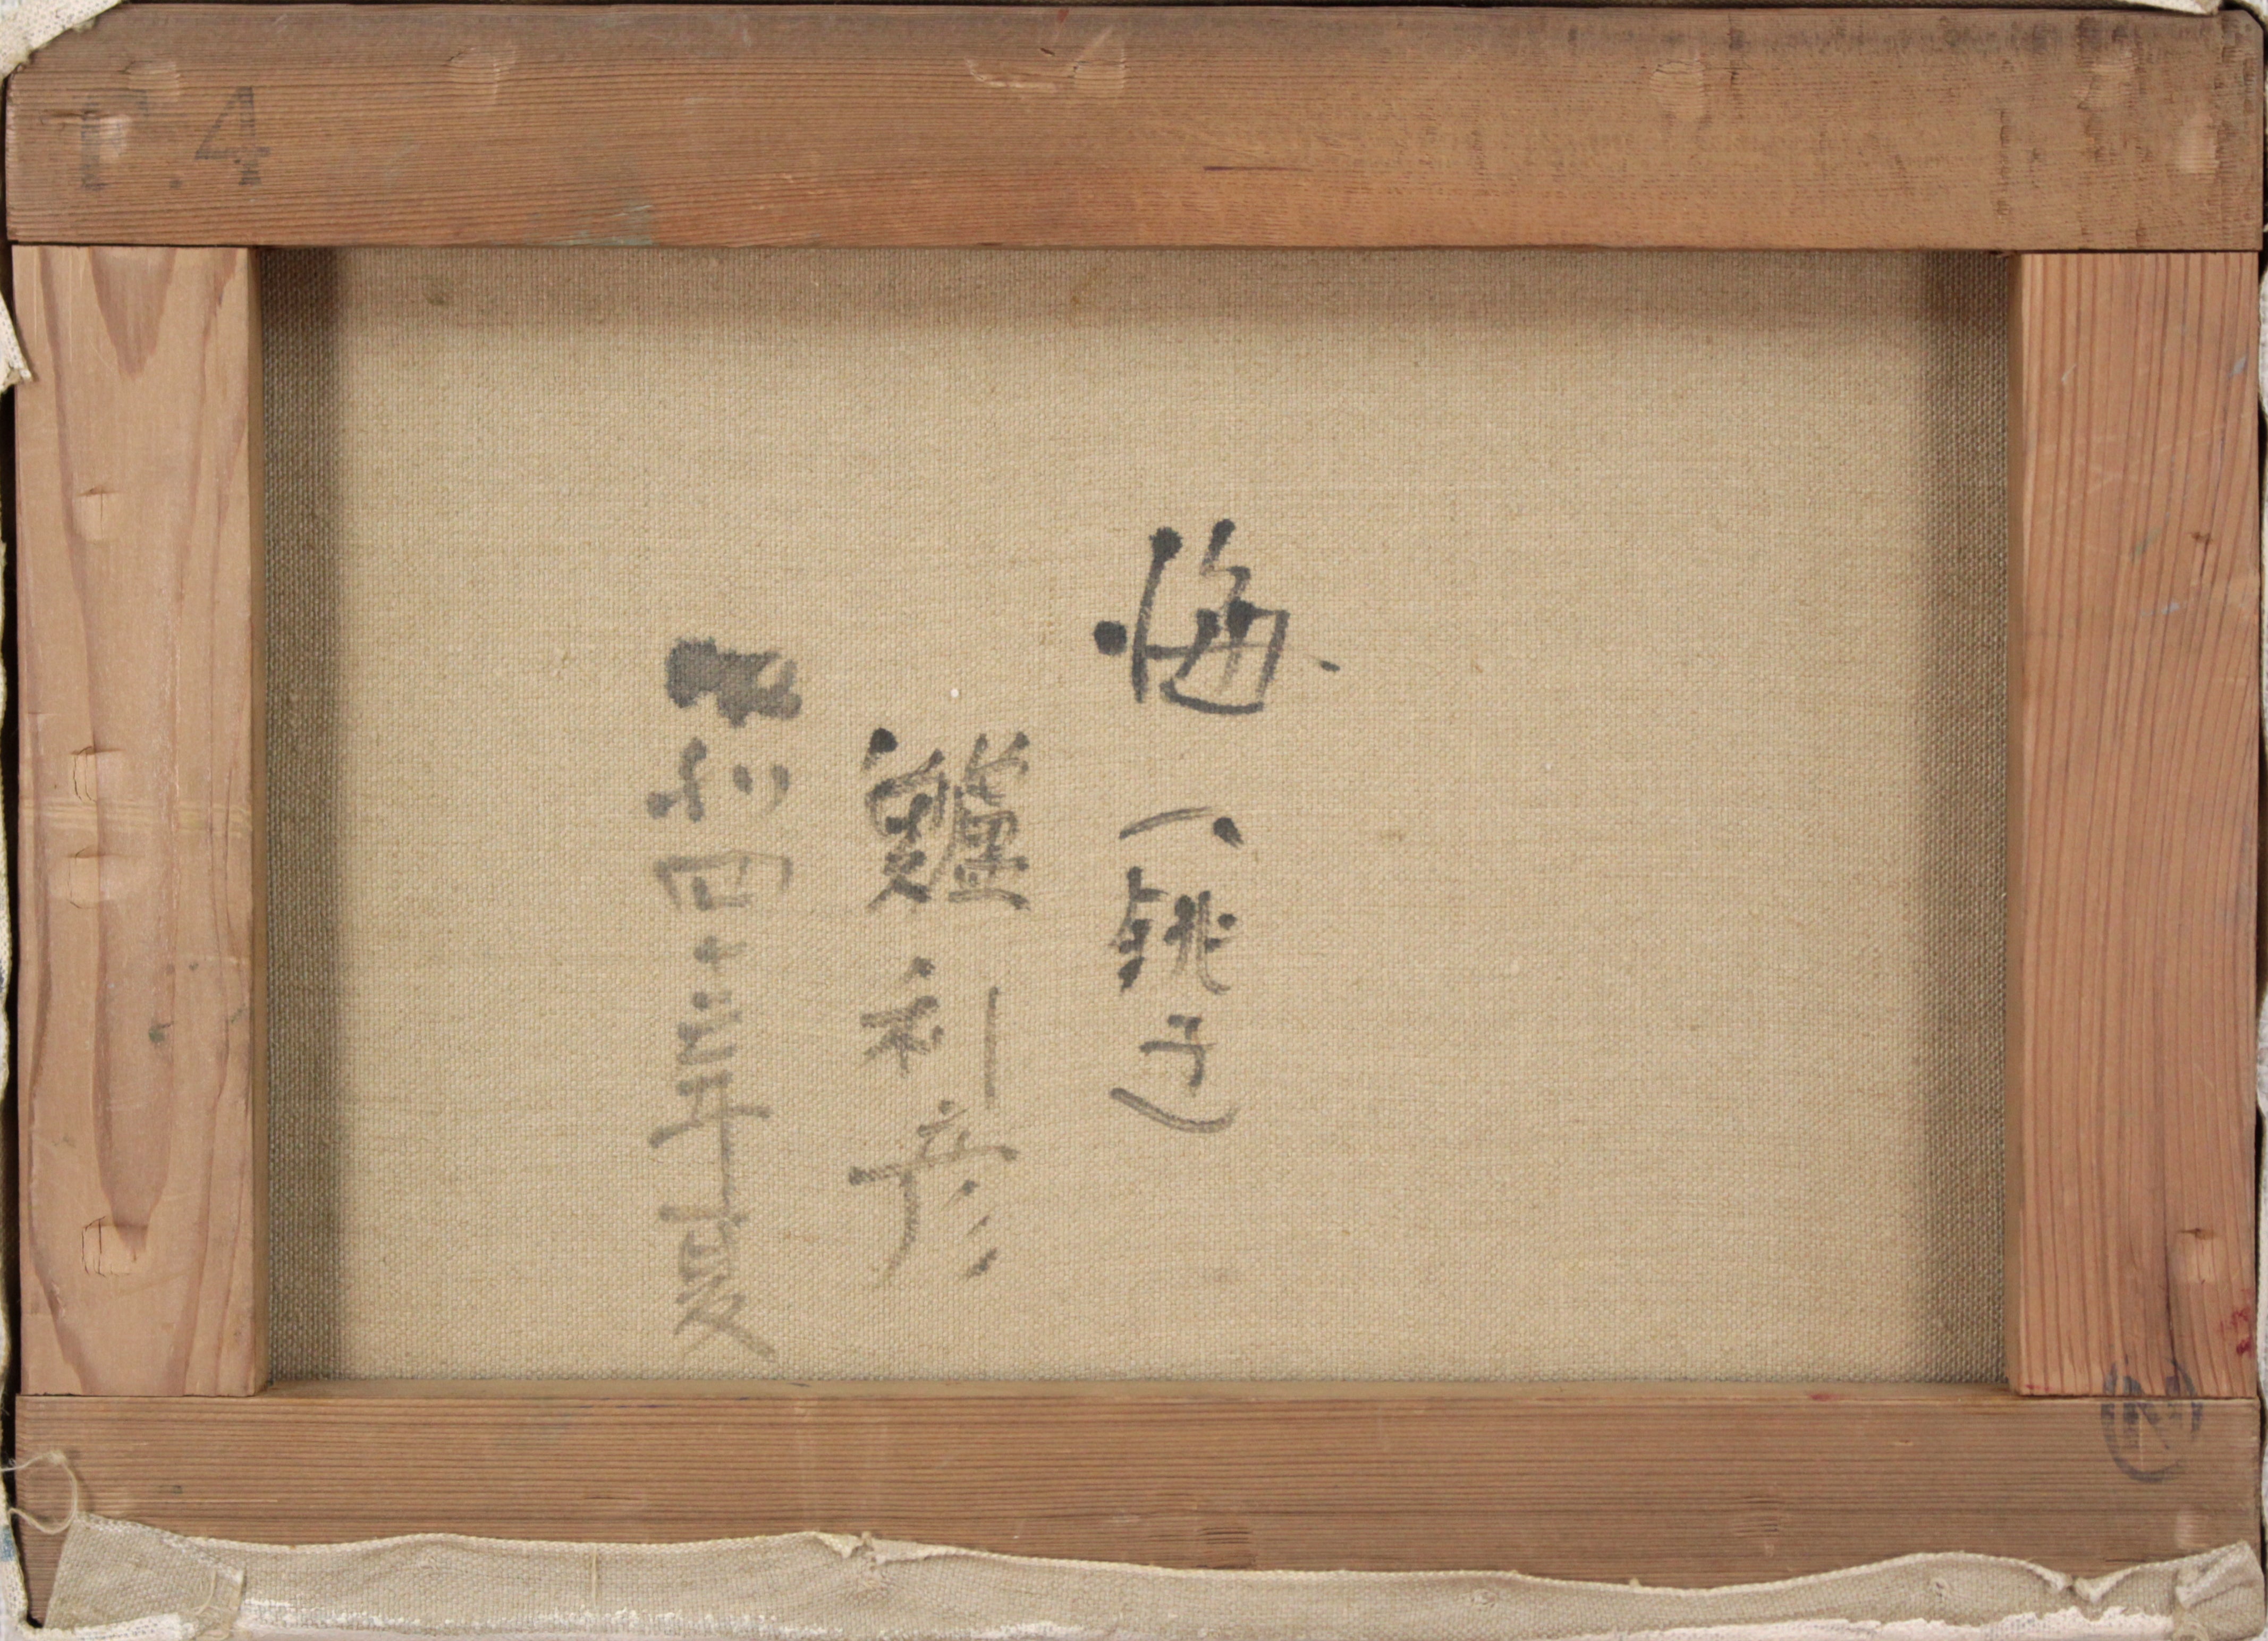 F.4
海
(銚子)
鱸利彦
昭和四十三年夏